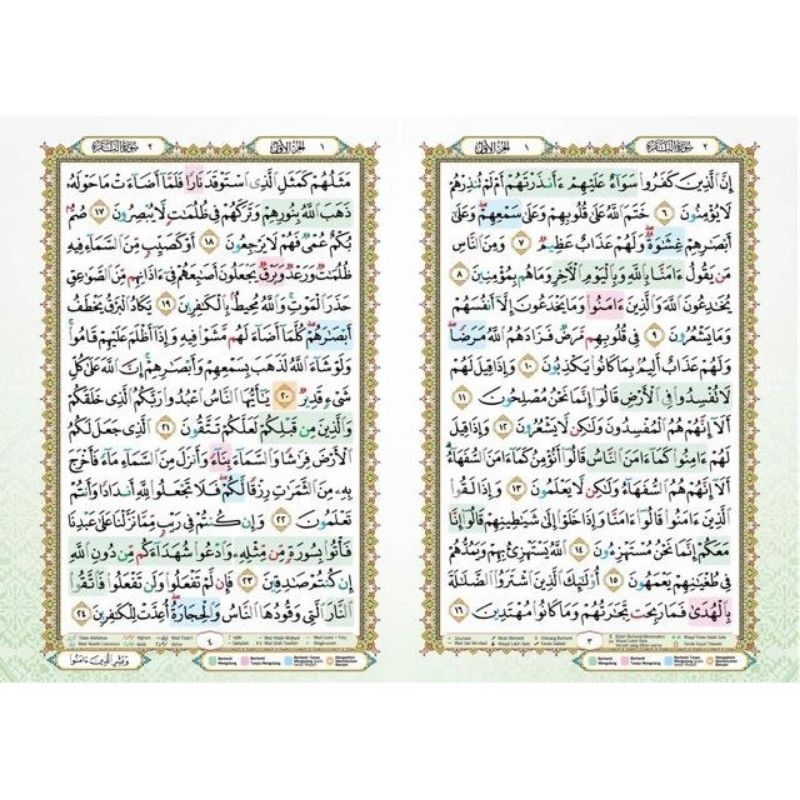 سورة البقرة ٢
الجزء الأول ١
إِنَّ الَّذِينَ كَفَرُوا سَوَاءٌ عَلَيْهِمْ ءَأَنذَرْتَهُمْ أَمْ لَمْ تُنذِرْهُمْ
لَا يُؤْمِنُونَ ٦ خَتَمَ اللَّهُ عَلَىٰ قُلُوبِهِمْ وَعَلَىٰ سَمْعِهِمْ ۖ وَعَلَىٰ
أَبْصَٰرِهِمْ غِشَٰوَةٌ ۖ وَلَهُمْ عَذَابٌ عَظِيمٌ ٧ وَمِنَ النَّاسِ
مَن يَقُولُ ءَامَنَّا بِاللَّهِ وَبِالْيَوْمِ الْءَاخِرِ وَمَا هُم بِمُؤْمِنِينَ ٨
يُخَٰدِعُونَ اللَّهَ وَالَّذِينَ ءَامَنُوا وَمَا يَخْدَعُونَ إِلَّا أَنفُسَهُمْ
وَمَا يَشْعُرُونَ ٩ فِي قُلُوبِهِم مَّرَضٌ فَزَادَهُمُ اللَّهُ مَرَضًا ۖ
وَلَهُمْ عَذَابٌ أَلِيمٌ بِمَا كَانُوا يَكْذِبُونَ ١٠ وَإِذَا قِيلَ لَهُمْ
لَا تُفْسِدُوا فِي الْأَرْضِ قَالُوا إِنَّمَا نَحْنُ مُصْلِحُونَ ١١
أَلَا إِنَّهُمْ هُمُ الْمُفْسِدُونَ وَلَٰكِن لَّا يَشْعُرُونَ ١٢ وَإِذَا قِيلَ
لَهُمْ ءَامِنُوا كَمَا ءَامَنَ النَّاسُ قَالُوا أَنُؤْمِنُ كَمَا ءَامَنَ السُّفَهَاءُ ۗ
أَلَا إِنَّهُمْ هُمُ السُّفَهَاءُ وَلَٰكِن لَّا يَعْلَمُونَ ١٣ وَإِذَا لَقُوا
الَّذِينَ ءَامَنُوا قَالُوا ءَامَنَّا وَإِذَا خَلَوْا إِلَىٰ شَيَٰطِينِهِمْ قَالُوا إِنَّا
مَعَكُمْ إِنَّمَا نَحْنُ مُسْتَهْزِءُونَ ١٤ اللَّهُ يَسْتَهْزِئُ بِهِمْ وَيَمُدُّهُمْ
فِي طُغْيَٰنِهِمْ يَعْمَهُونَ ١٥ أُولَٰئِكَ الَّذِينَ اشْتَرَوُا الضَّلَٰلَةَ
بِالْهُدَىٰ فَمَا رَبِحَت تِّجَٰرَتُهُمْ وَمَا كَانُوا مُهْتَدِينَ ١٦
٣
سورة البقرة ٢
الجزء الأول ١
مَثَلُهُمْ كَمَثَلِ الَّذِي اسْتَوْقَدَ نَارًا فَلَمَّا أَضَاءَتْ مَا حَوْلَهُ
ذَهَبَ اللَّهُ بِنُورِهِمْ وَتَرَكَهُمْ فِي ظُلُمَٰتٍ لَّا يُبْصِرُونَ ١٧ صُمٌّ
بُكْمٌ عُمْيٌ فَهُمْ لَا يَرْجِعُونَ ١٨ أَوْ كَصَيِّبٍ مِّنَ السَّمَاءِ فِيهِ
ظُلُمَٰتٌ وَرَعْدٌ وَبَرْقٌ يَجْعَلُونَ أَصَٰبِعَهُمْ فِي ءَاذَانِهِم مِّنَ الصَّوَٰعِقِ
حَذَرَ الْمَوْتِ ۚ وَاللَّهُ مُحِيطٌ بِالْكَٰفِرِينَ ١٩ يَكَادُ الْبَرْقُ يَخْطَفُ
أَبْصَٰرَهُمْ ۖ كُلَّمَا أَضَاءَ لَهُم مَّشَوْا فِيهِ وَإِذَا أَظْلَمَ عَلَيْهِمْ قَامُوا ۚ
وَلَوْ شَاءَ اللَّهُ لَذَهَبَ بِسَمْعِهِمْ وَأَبْصَٰرِهِمْ ۚ إِنَّ اللَّهَ عَلَىٰ كُلِّ
شَيْءٍ قَدِيرٌ ٢٠ يَٰأَيُّهَا النَّاسُ اعْبُدُوا رَبَّكُمُ الَّذِي خَلَقَكُمْ
وَالَّذِينَ مِن قَبْلِكُمْ لَعَلَّكُمْ تَتَّقُونَ ٢١ الَّذِي جَعَلَ لَكُمُ
الْأَرْضَ فِرَٰشًا وَالسَّمَاءَ بِنَاءً وَأَنزَلَ مِنَ السَّمَاءِ مَاءً فَأَخْرَجَ
بِهِ مِنَ الثَّمَرَٰتِ رِزْقًا لَّكُمْ ۖ فَلَا تَجْعَلُوا لِلَّهِ أَندَادًا وَأَنتُمْ
تَعْلَمُونَ ٢٢ وَإِن كُنتُمْ فِي رَيْبٍ مِّمَّا نَزَّلْنَا عَلَىٰ عَبْدِنَا
فَأْتُوا بِسُورَةٍ مِّن مِّثْلِهِ وَادْعُوا شُهَدَاءَكُم مِّن دُونِ اللَّهِ
إِن كُنتُمْ صَٰدِقِينَ ٢٣ فَإِن لَّمْ تَفْعَلُوا وَلَن تَفْعَلُوا فَاتَّقُوا
النَّارَ الَّتِي وَقُودُهَا النَّاسُ وَالْحِجَارَةُ ۖ أُعِدَّتْ لِلْكَٰفِرِينَ ٢٤
٤
وَبَشِّرِ الَّذِينَ ءَامَنُوا